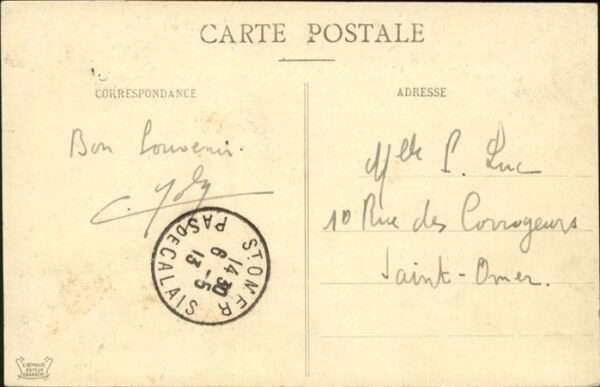 CARTE POSTALE
CORRESPONDANCE
ADRESSE
Bon Souvenir.
C. Joly
Mlle P. Luc
10 Rue des Corroyeurs
Saint-Omer.
ST OMER
14 30
6 - 5
13
PAS DE CALAIS